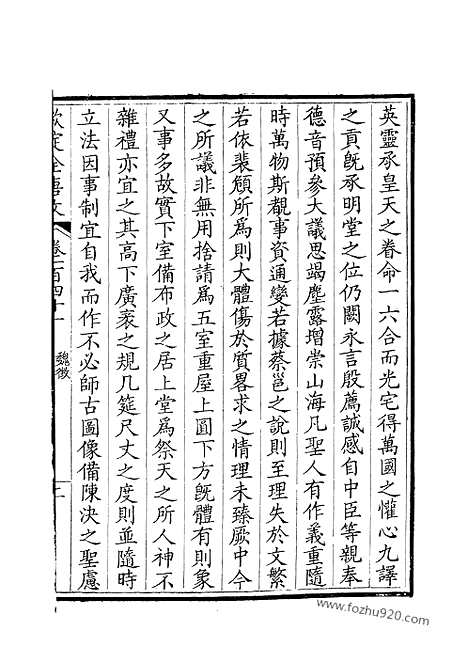 英靈承皇天之眷命一六合而光宅得萬國之懽心九譯
之貢旣承明堂之位仍闕永言殷薦誠感自中臣等親奉
德音預參大議思竭塵露增崇山海凡聖人有作義重隨
時萬物斯覩事資通變若據蔡邕之說則至理失於文繁
若依裴頠所爲則大體傷於質畧求之情理未臻厥中今
之所議非無用捨請爲五室重屋上圓下方旣體有則象
又事多故實下室備布政之居上堂爲祭天之所人神不
雜禮亦宜之其高下廣袤之規几筵尺丈之度則並隨時
立法因事制宜自我而作不必師古圖像備陳決之聖慮
欽定全唐文
卷一百四十一
魏徵
www.fozhu920.com